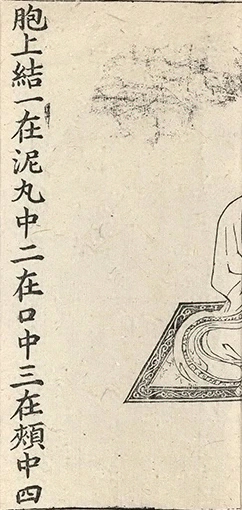 胞上結一在泥丸中二在口中三在頰中四